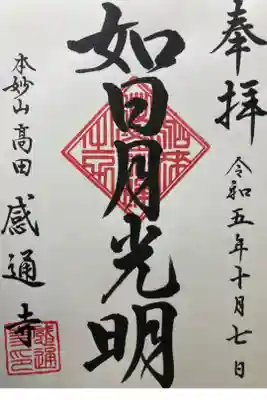 奉拝
令和五年十月七日
如日月光明
本妙山高田感通寺